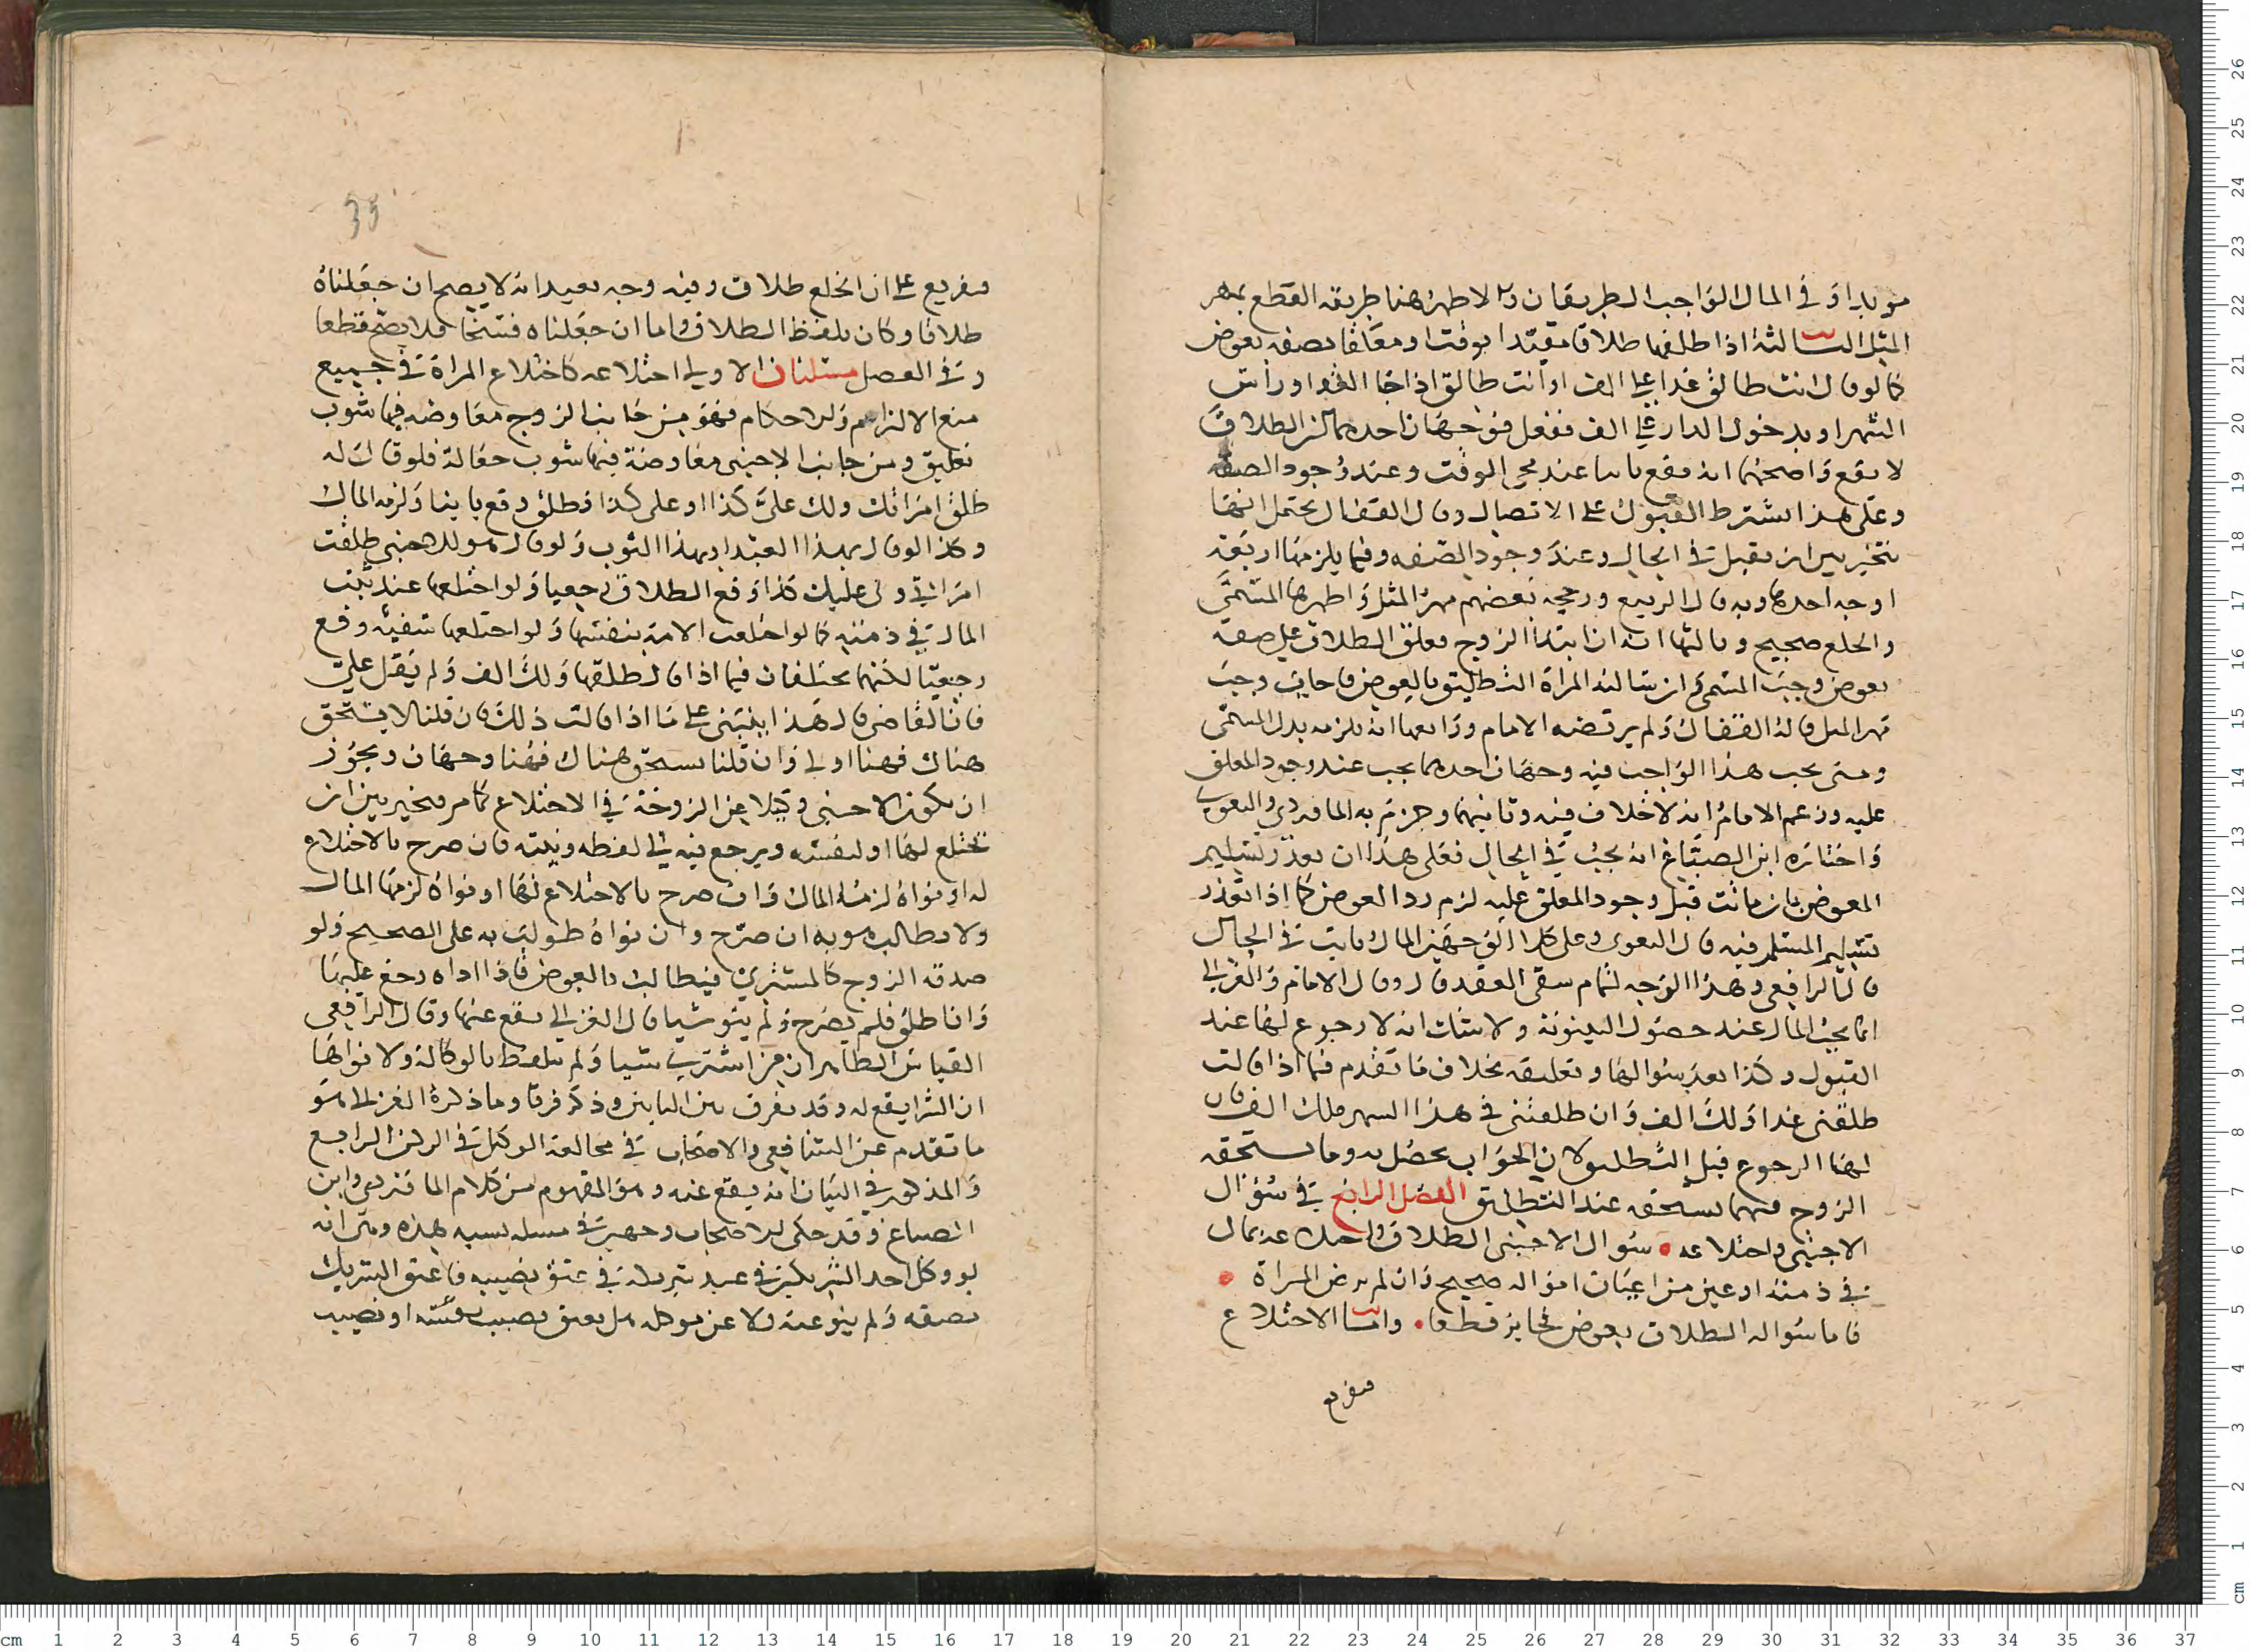 مويدا وفي المال الواجب الطريقان والاظهر هنا طريقه القطع بمهر
المثل الثالثة اذا طلقها طلاقا مقيدا بوقت او معلقا بصفه بعوض
كما لو قال انت طالق غدا على الف او انت طالق اذا جا الغد او راس
الشهر او بدخول الدار على الف ففعل فوجهان احدهما ان الطلاق
لا يقع واصحهما انه يقع باينا عند مجي الوقت وعند وجود الصفه
وعلى هذا يشترط القبول على الاتصال وقال القفال يحتمل انها
تتخير بين ان تقبل في الحال وعند وجود الصفه وفيما يلزمها اربعة
اوجه احدها وبه قال الربيع ورجحه بعضهم مهر المثل واظهرها المسمى
والخلع صحيح وثالثها انه ان ابتدا الزوج فعلق الطلاق على صفه
بعوض وجب المسمى وان سالت المراة التطليق بالعوض فاجاب وجب
مهر المثل قاله القفال ولم يرتضه الامام ورابعها انه يلزمه بدل المسمى
ومتى يجب هذا الواجب فيه وجهان احدهما يجب عند وجود المعلق
عليه وزعم الامام انه لا خلاف فيه وثانيهما وجزم به الماوردي والبغوي
واختاره ابن الصباغ انه يجب في الحال فعلى هذا ان تعذر تسليم
المعوض بان ماتت قبل وجود المعلق عليه لزم رد العوض كما اذا تعذر
تسليم المسلم فيه قال البغوي وعلى كلا الوجهين المال ثابت في الحال
قال الرافعي وهذا الوجه لتمام شقي العقد قال وقال الامام والغزالي
انما يجب المال عند حصول البينونة ولا شك انه لا رجوع لها عند
القبول وكذا بعد سوالها وتعليقه بخلاف ما تقدم فيما اذا قالت
طلقني غدا ولك الف وان طلقتني في هذا الشهر فلك الف فان
لها الرجوع قبل التطليق لان الجواب يحصل به وما يستحقه
الزوج فيهما يستحقه عند التطليق الفصل الرابع في سؤال
الاجنبي واختلاعه سوال الاجنبي الطلاق واختلاعه بمال
في ذمته او عين من اعيان امواله صحيح وان لم ترض المراة
فاما سواله الطلاق بعوض فجايز قطعا واما الاختلاع
تفريع
35
تفريع على ان الخلع طلاق وفيه وجه بعيد انه لا يصح ان جعلناه
طلاقا وكان بلفظ الطلاق واما ان جعلناه فسخا فلا يصح قطعا
وفي الفصل مسئلتان الاولى اختلاعه كاختلاع المراة في جميع
صيغ الالتزام والاحكام فهو من جانب الزوج معاوضه فيها شوب
تعليق ومن جانب الاجنبي معاوضة فيها شوب جعالة فلو قال له
طلق امراتك ولك علي كذا او على كذا فطلق وقع باينا ولزمه المال
وكذا لو قال بهذا العبد او بهذا الثوب ولو قال هو للاجنبي طلقت
امراتي ولي عليك كذا وقع الطلاق رجعيا ولو اختلعها عبد ثبت
المال في ذمته كما لو اختلعت الامة بنفسها ولو اختلعها سفيه وقع
رجعيا لكنهما يختلفان فيما اذا قال طلقها ولك الف ولم يقل علي
فان القاضي قال هذا ينبني على ما اذا قالت ذلك فان قلنا لا يستحق
هناك فههنا اولى وان قلنا يستحق هناك فههنا وجهان ويجوز
ان يكون الاجنبي وكيلا عن الزوجة في الاختلاع كما مر فيخير بين ان
يختلع لها او لنفسه ويرجع فيه الى لفظه ونيته فان صرح بالاختلاع
له او نواه لزمه المال وان صرح بالاختلاع لها او نواه لزمها المال
ولا يطالب هو به ان صرح وان نواه طولب به على الصحيح ولو
صدقه الزوج كالمشتري فيطالب بالعوض فاذا اداه رجع عليها
وان اطلق فلم يصرح ولم ينو شيا قال الغزالي يقع عنها وقال الرافعي
القياس الظاهر ان من اشترى شيا ولم يتلفظ بالوكالة ولا نواها
ان الشرا يقع له وقد يفرق بين البابين وذكر فرقا وما ذكره الغزالي هو
ما تقدم عن الشافعي والاصحاب في مخالعة الوكيل في الركن الرابع
والمذكور في البيان انه يقع عنه وهو المفهوم من كلام الماوردي وابن
الصباغ وقد حكى الاصحاب وجهين في مسله تشبه هذه وهي انه
لو وكل احد الشريكين في عبد شريكه في عتق نصيبه فاعتق الشريك
نصفه ولم ينو عنه ولا عن موكله هل يعتق نصيب نفسه او نصيب